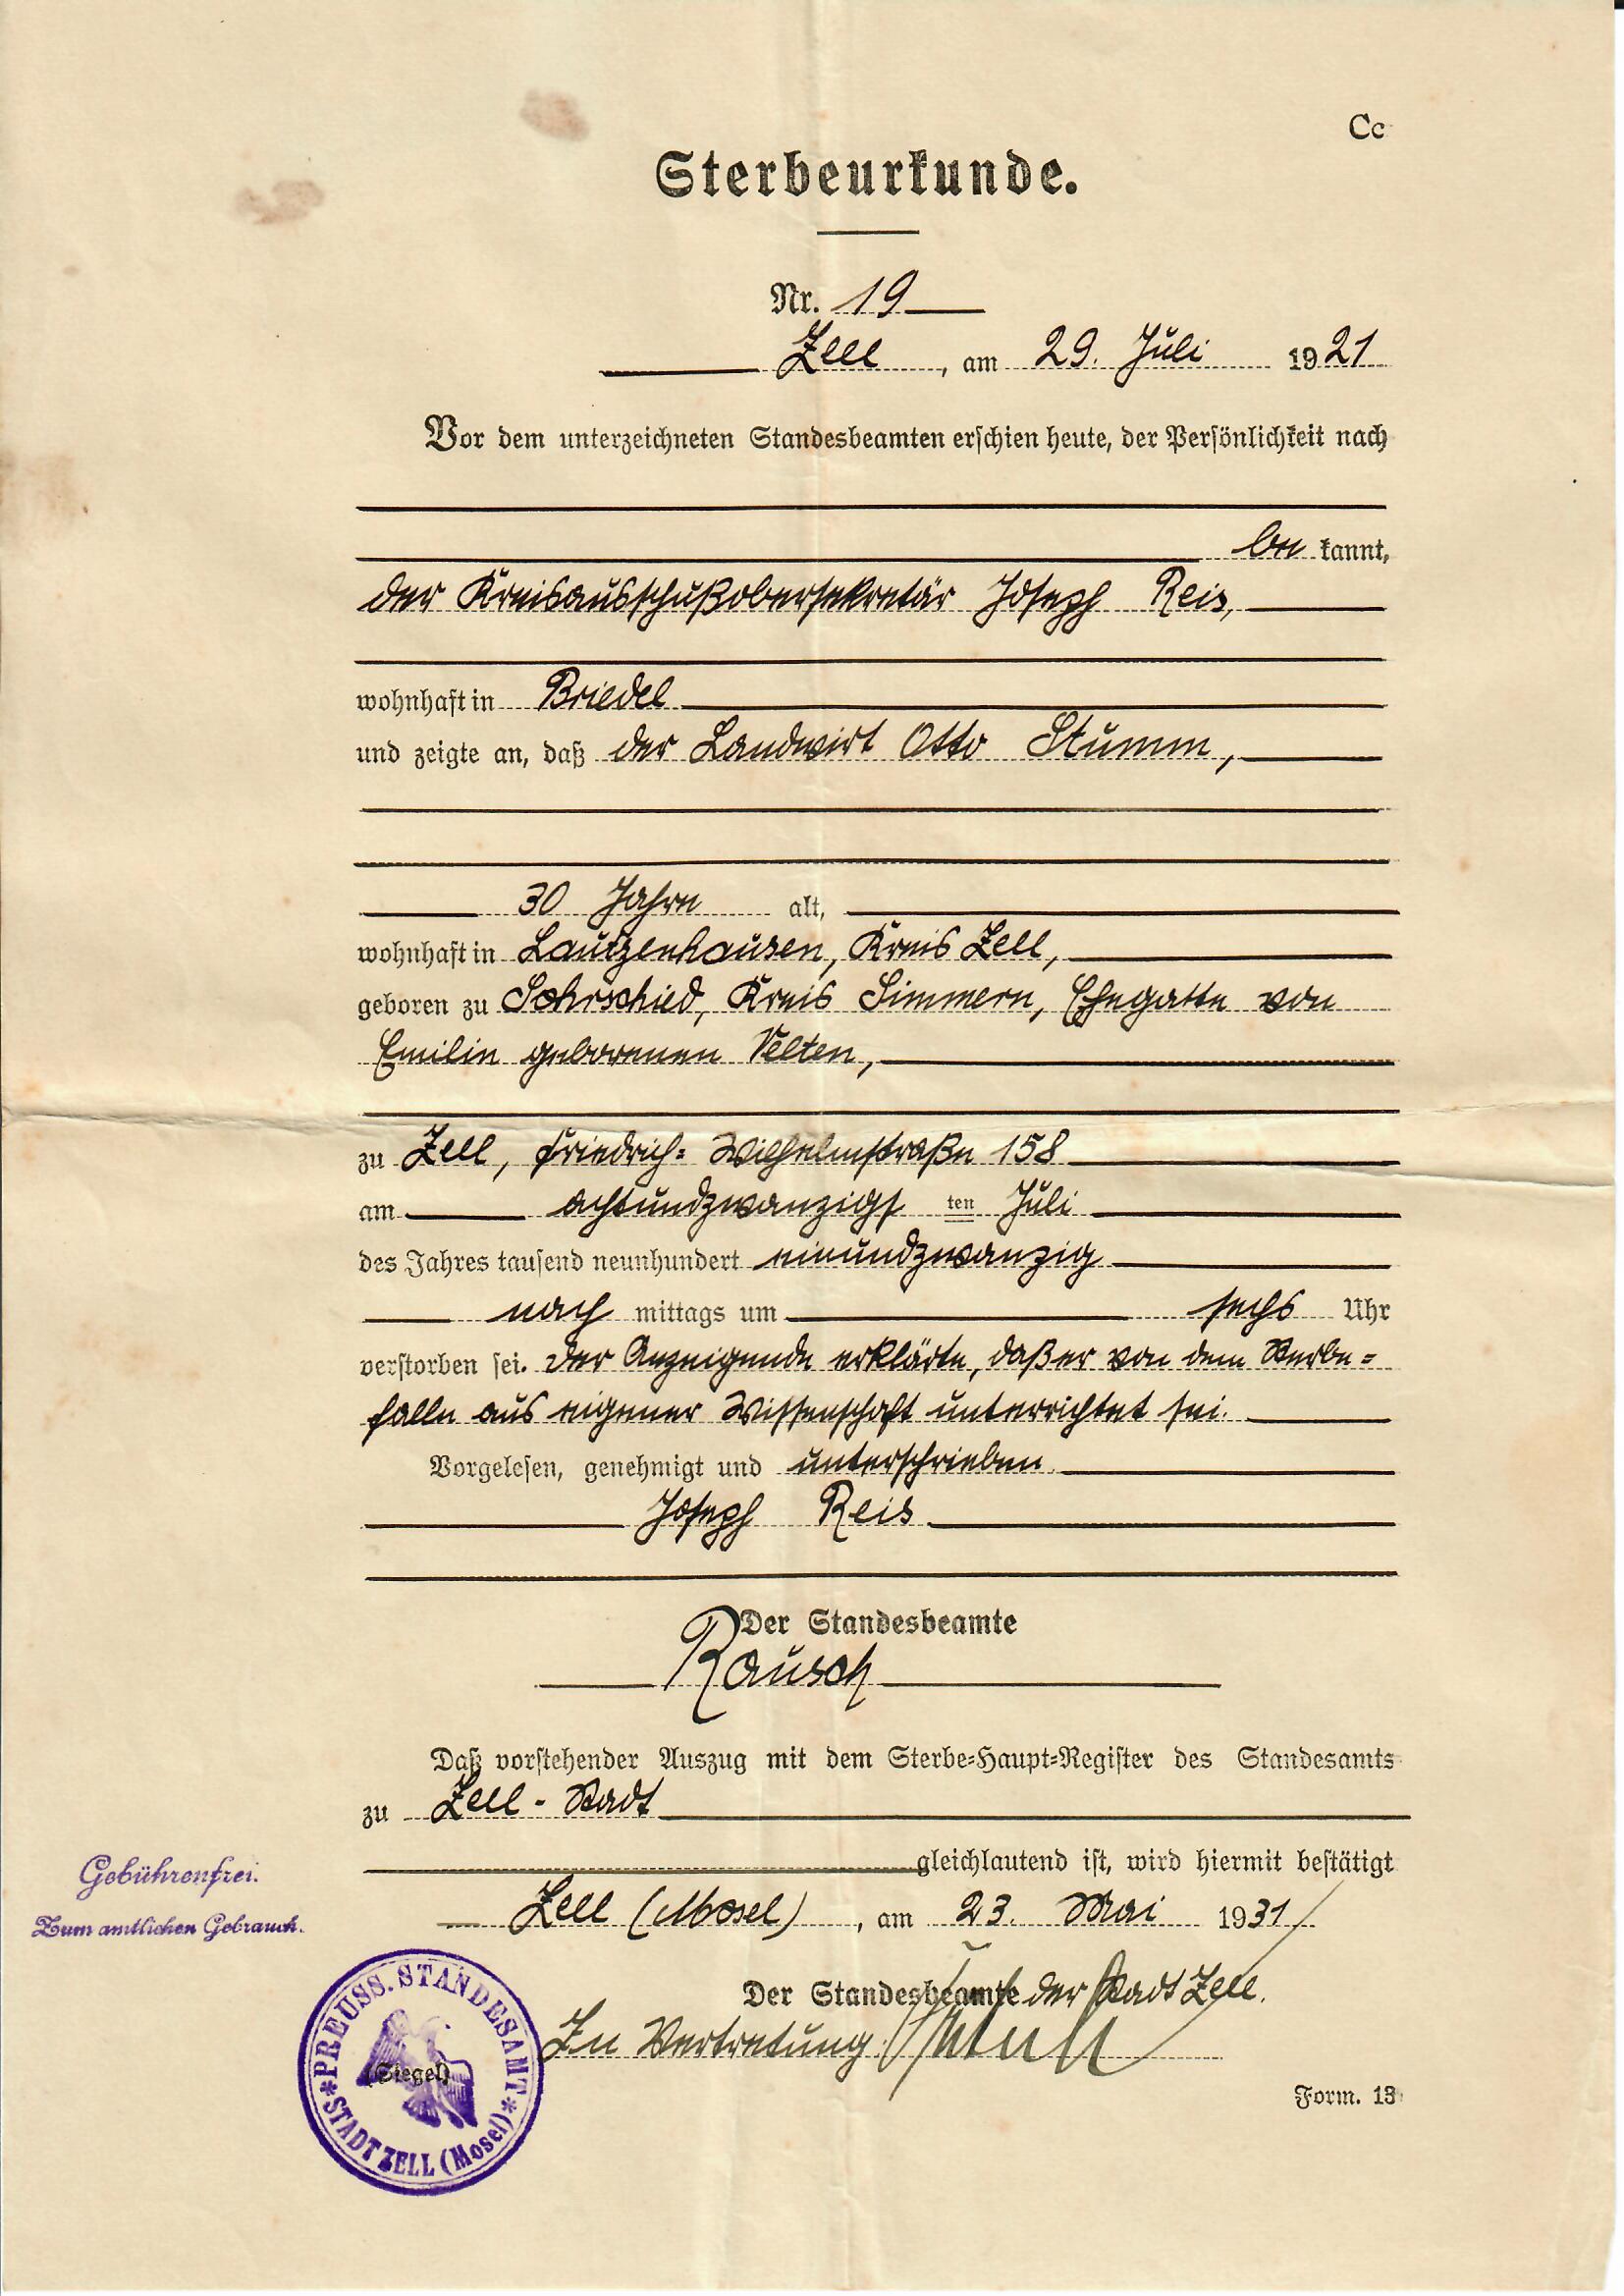 Cc
Sterbeurkunde.
Nr. 19
Zell, am 29. Juli 1921
Vor dem unterzeichneten Standesbeamten erschien heute, der Persönlichkeit nach
be kannt,
der Kreisausschußobersekretär Joseph Reis,
wohnhaft in Briedel
und zeigte an, daß der Landwirt Otto Stumm,
30 Jahre alt,
wohnhaft in Lautzenhausen, Kreis Zell,
geboren zu Sohrschied, Kreis Simmern, Ehegatte von
Emilie geborenen Velten,
zu Zell, Friedrich-Wilhelmstraße 158
am achtundzwanzigs ten Juli
des Jahres tausend neunhundert einundzwanzig
nach mittags um sechs Uhr
verstorben sei. Der Anzeigende erklärte, daß er von dem Sterbe-
falle aus eigener Wissenschaft unterrichtet sei.
Vorgelesen, genehmigt und unterschrieben.
Joseph Reis
Der Standesbeamte
Rausch
Daß vorstehender Auszug mit dem Sterbe-Haupt-Register des Standesamts
zu Zell-Stadt
gleichlautend ist, wird hiermit bestätigt
Gebührenfrei.
Zum amtlichen Gebrauch.
Zell (Mosel), am 23. Mai 1931
Der Standesbeamte der Stadt Zell.
In Vertretung
(Siegel)
*PREUSS. STANDESAMT*
STADT ZELL (Mosel)
Form. 13